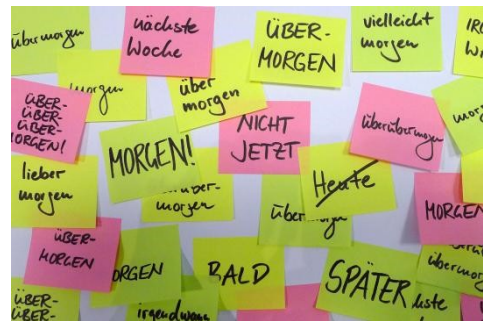 übermorgen
nächste
Woche
ÜBER-
MORGEN
vielleicht
morgen
morgen
über
morgen
ÜBER-
ÜBER-
ÜBER-
MORGEN!
MORGEN!
NICHT
JETZT
überübermorgen
lieber
morgen
über-
morgen
Heute
MORGEN
ÜBER-
MORGEN
ORGEN
BALD
SPÄTER
übermorg
ÜBER-
ÜBER-
irgendwann